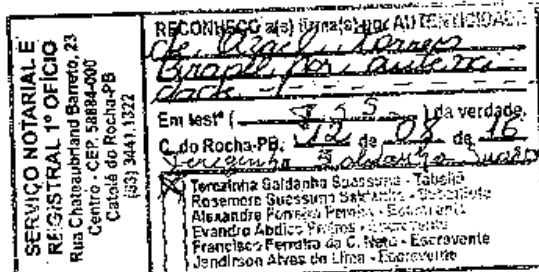 SERVIÇO NOTARIAL E
REGISTRAL 1º OFÍCIO
Rua Chateaubriand Barreto, 23
Centro - CEP. 58884-000
Catolé do Rocha-PB
(83) 3441.1322
RECONHEÇO a(s) firma(s) por AUTENTICIDADE
de
por autenti
cidade
Em testº ( ) da verdade.
C. do Rocha-PB, 12 de 08 de 16
Terezinha Saldanha Suassuna
Terezinha Saldanha Suassuna - Tabeliã
Rosemere Suassuna Saldanha - Substituta
Alexandre Ferreira Pereira - Escrevente
Evandro Abdias - Escrevente
Francisco Ferreira da C. Neto - Escrevente
Jandirson Alves de Lima - Escrevente